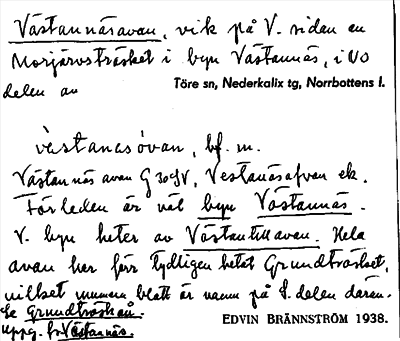 Västannäsavan, vik på V. sidan av
Morjärvsträsket i byn Västannäs, i NO
delen av
Töre sn, Nederkalix tg, Norrbottens l.
västanasåvan, bf. m.
Västannäs avan G 30 SV, Vestanäsafvan ek.
Förleden är väl byn Västannäs.
V. byn heter av Västantillavan. Hela
avan har förr tydligen hetat Grundträsket,
vilket numera blott är namn på S. delen därav.
Se Grundträsket.
Uppg. fr Västannäs.
EDVIN BRÄNNSTRÖM 1938.